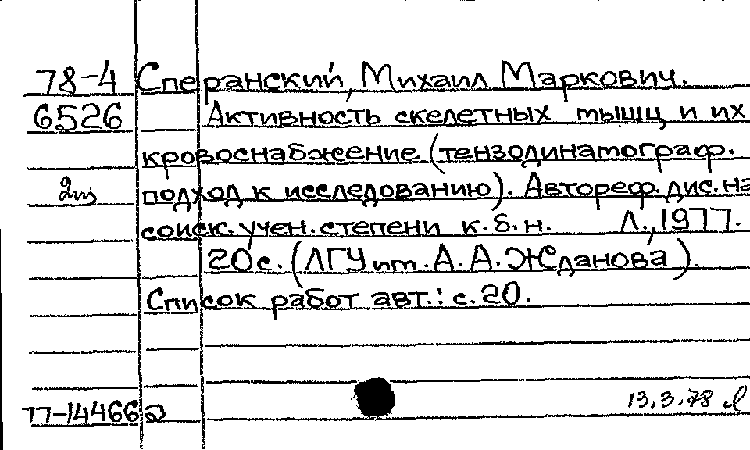 78-4 Сперанский, Михаил Маркович.
6526 Активность скелетных мышц и их
кровоснабжение (тензодинатограф.
подход к исследованию). Автореф. дис. на
соиск. учен. степени к.б.н. Л., 1977.
20 с. (ЛГУ им. А.А. Жданова).
Список работ авт.: с. 20.
77-14466 13.3.78